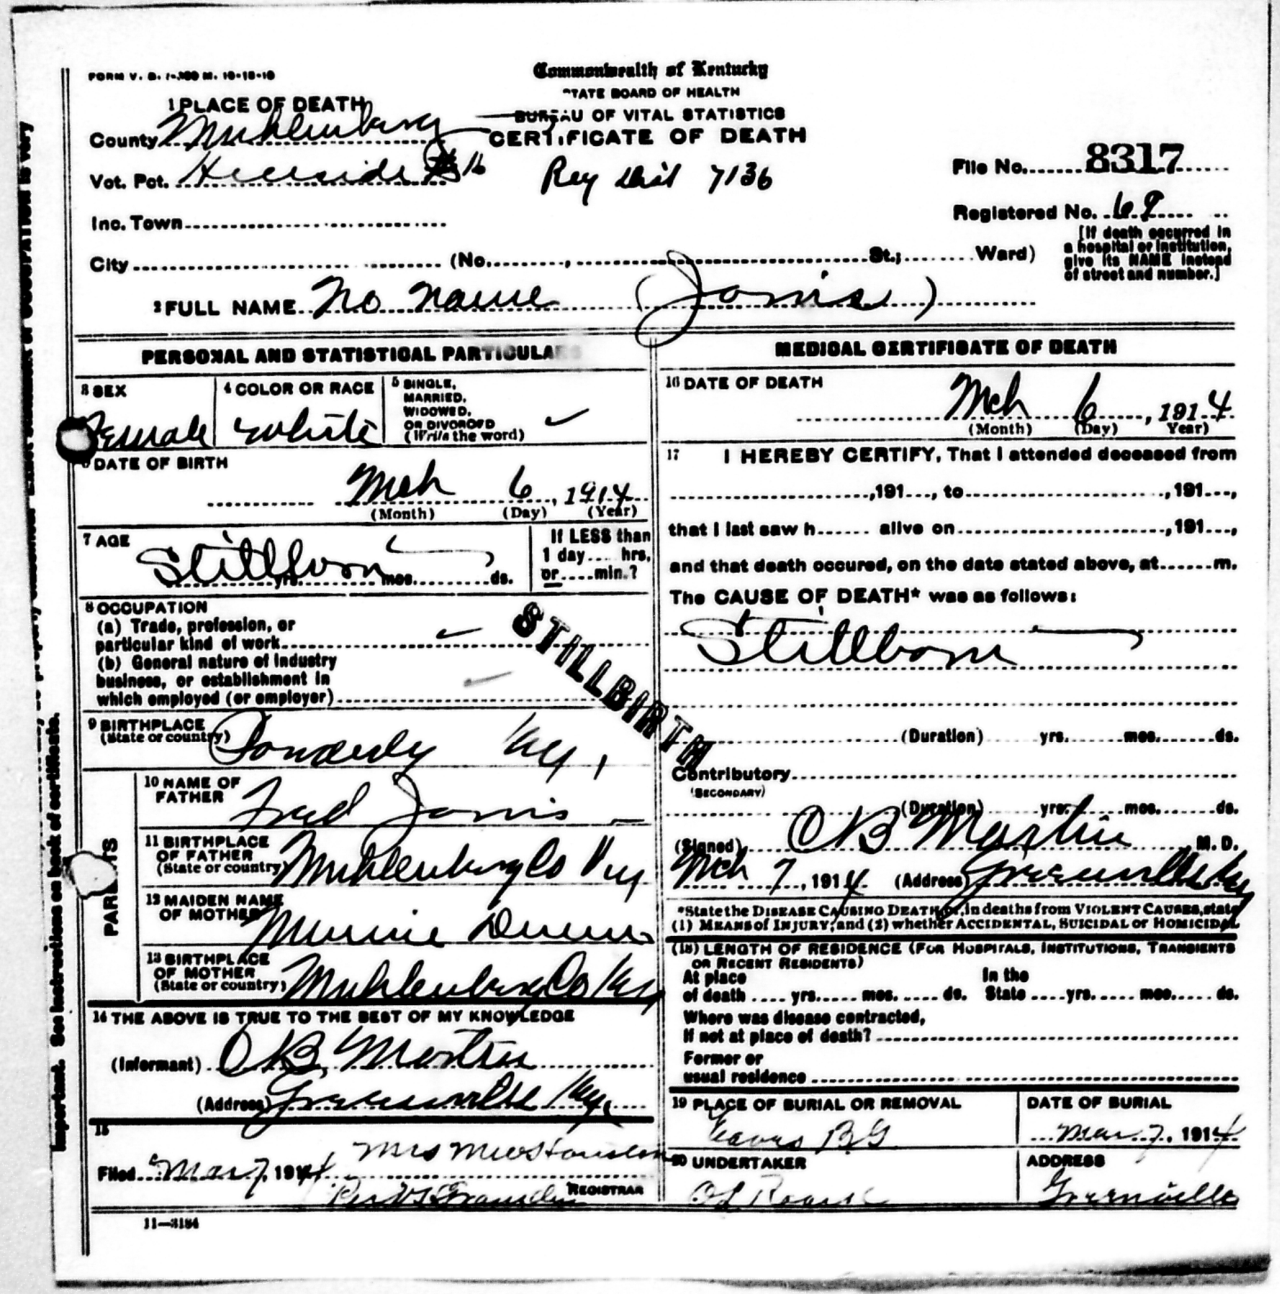 FORM V. S. 1-300 M. 10-18-10
Commonwealth of Kentucky
STATE BOARD OF HEALTH
BUREAU OF VITAL STATISTICS
CERTIFICATE OF DEATH
1 PLACE OF DEATH
County Muhlenberg
Vot. Pct. Hillside #16
Reg Dist 7136
File No. 8317
Inc. Town
Registered No. 68
[If death occurred in a hospital or institution, give its NAME instead of street and number.]
City (No. , St.; Ward)
2 FULL NAME No name (Jarvis)
PERSONAL AND STATISTICAL PARTICULARS
3 SEX Female
4 COLOR OR RACE White
5 SINGLE, MARRIED, WIDOWED, OR DIVORCED (Write the word) ✓
6 DATE OF BIRTH
Mch 6, 1914
(Month) (Day) (Year)
7 AGE Stillborn
yrs. mos. ds.
If LESS than 1 day .... hrs, or .... min.?
8 OCCUPATION
(a) Trade, profession, or particular kind of work ✓
(b) General nature of industry business, or establishment in which employed (or employer) ✓
STILLBIRTH
9 BIRTHPLACE (State or country) Powderly Ky,
PARENTS
10 NAME OF FATHER Fred Jarvis
11 BIRTHPLACE OF FATHER (State or country) Muhlenberg Co Ky
12 MAIDEN NAME OF MOTHER Minnie
13 BIRTHPLACE OF MOTHER (State or country) Muhlenberg Co Ky
14 THE ABOVE IS TRUE TO THE BEST OF MY KNOWLEDGE
(Informant) O B. Martin
(Address) Greenville Ky.
15
Filed Mar 7, 1914 Mrs
REGISTRAR
11—3184
MEDICAL CERTIFICATE OF DEATH
16 DATE OF DEATH
Mch 6, 1914
(Month) (Day) (Year)
17 I HEREBY CERTIFY, That I attended deceased from
, 191 , to , 191 ,
that I last saw h alive on , 191 ,
and that death occured, on the date stated above, at m.
The CAUSE OF DEATH* was as follows:
Stillborn
(Duration) yrs. mos. ds.
Contributory
(SECONDARY)
(Duration) yrs. mos. ds.
(Signed) O B Martin M. D.
Mch 7, 1914 (Address) Greenville Ky
*State the DISEASE CAUSING DEATH, or, in deaths from VIOLENT CAUSES, state
(1) MEANS of INJURY; and (2) whether ACCIDENTAL, SUICIDAL or HOMICIDAL
(18) LENGTH OF RESIDENCE (FOR HOSPITALS, INSTITUTIONS, TRANSIENTS OR RECENT RESIDENTS)
At place of death yrs. mos. ds. In the State yrs. mos. ds.
Where was disease contracted,
If not at place of death?
Former or
usual residence
19 PLACE OF BURIAL OR REMOVAL
Eaves B G
DATE OF BURIAL
Mar. 7, 1914
20 UNDERTAKER
ADDRESS
Greenville
important. See instructions on back of certificate.